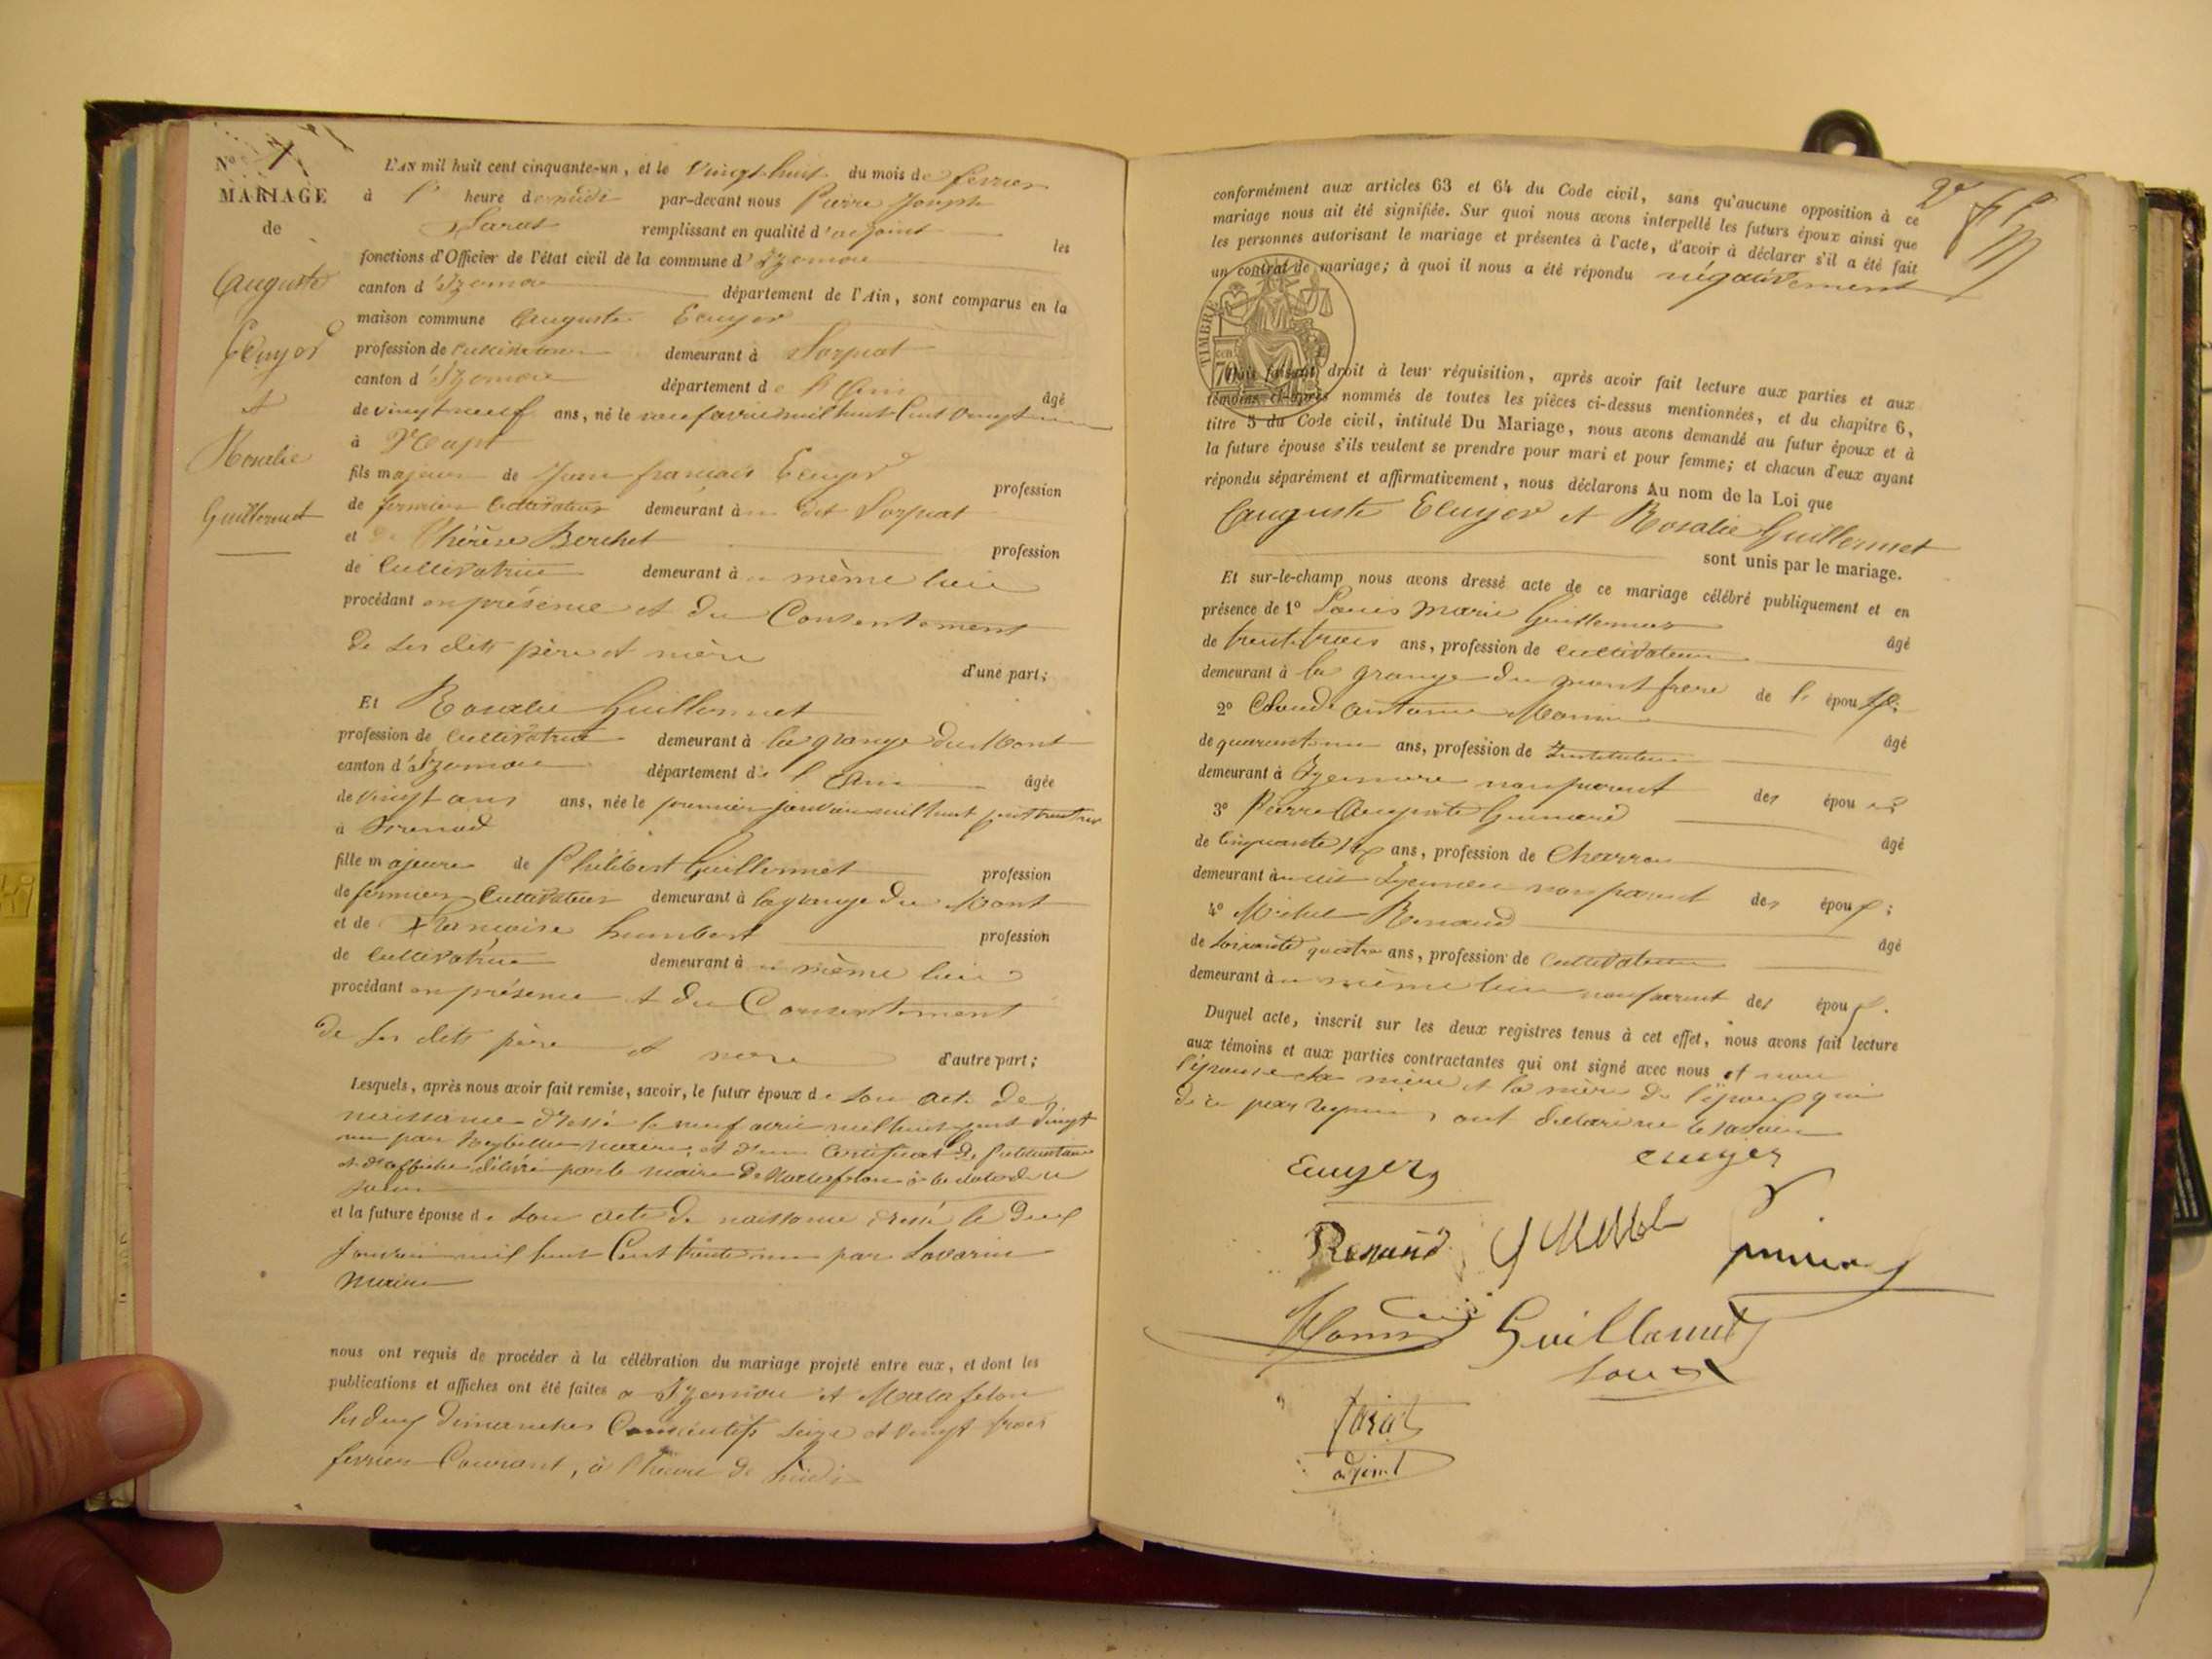 Nº 7
L'AN mil huit cent cinquante-un, et le vingt huit du mois de fevrier
MARIAGE
à l' heure de midi par-devant nous Pierre Joseph
de
Sarat remplissant en qualité d'adjoint les
fonctions d'Officier de l'état civil de la commune d'Izernore
Auguste
canton d'Izernore département de l'Ain, sont comparus en la
maison commune Auguste Ecuyer
Ecuyer
profession de cultivateur demeurant à Sorpiat
canton d'Izernore département de l'Ain âgé
et
de vingt neuf ans, né le neuf avril mil huit cent vingt un
à
Rosalie
fils majeur de Jean francois Ecuyer profession
Guillermet
de fermier Cultivateur demeurant à dit Sorpiat
et de Thérèse Berchet profession
de Cultivatrice demeurant à même lieu
procédant en présence et du Consentement
de ses dits père et mère d'une part;
Et Rosalie Guillermet
profession de Cultivatrice demeurant à la grange du Mont
canton d'Izernore département de l'Ain âgée
de vingt ans ans, née le premier janvier mil huit cent trente un
à
fille majeure de Philibert Guillermet profession
de fermier Cultivateur demeurant à la grange du Mont
et de Francoise humbert profession
de Cultivatrice demeurant à même lieu
procédant en présence et du Consentement
de ses dits père et mere d'autre part;
Lesquels, après nous avoir fait remise, savoir, le futur époux de son acte de
naissance dressé le neuf avril mil huit cent vingt
un par maire, et d'un Certificat de Publication
et d'affiche délivré par le maire de Matafelon à la date de ce
jour
et la future épouse de son acte de naissance dressé le deux
janvier mil huit Cent trente un par Savarin
maire
nous ont requis de procéder à la célébration du mariage projeté entre eux, et dont les
publications et affiches ont été faites a Izernore et Matafelon
les deux dimanches Consécutifs seize et vingt trois
fevrier Courant, à l'heure de midi
conformément aux articles 63 et 64 du Code civil, sans qu'aucune opposition à ce
mariage nous ait été signifiée. Sur quoi nous avons interpellé les futurs époux ainsi que
les personnes autorisant le mariage et présentes à l'acte, d'avoir à déclarer s'il a été fait
un contrat de mariage; à quoi il nous a été répondu négativement
TIMBRE
70
Nous faisant droit à leur réquisition, après avoir fait lecture aux parties et aux
témoins ci-après nommés de toutes les pièces ci-dessus mentionnées, et du chapitre 6,
titre 5 du Code civil, intitulé Du Mariage, nous avons demandé au futur époux et à
la future épouse s'ils veulent se prendre pour mari et pour femme; et chacun d'eux ayant
répondu séparément et affirmativement, nous déclarons Au nom de la Loi que
Auguste Ecuyer et Rosalie Guillermet
sont unis par le mariage.
Et sur-le-champ nous avons dressé acte de ce mariage célébré publiquement et en
présence de 1º Louis Marie Guillermet âgé
de trente trois ans, profession de cultivateur
demeurant à la grange du mont frere de l' épouse;
2º Claude antoine Monin âgé
de quarante un ans, profession de Instituteur
demeurant à Izernore non parent des époux
3º Pierre Auguste âgé
de Cinquante six ans, profession de Charron
demeurant à Izernore non parent des époux;
4º Michel Renaud âgé
de soixante quatre ans, profession de Cultivateur
demeurant à même lieu non parent des époux.
Duquel acte, inscrit sur les deux registres tenus à cet effet, nous avons fait lecture
aux témoins et aux parties contractantes qui ont signé avec nous et non
l'épouse sa mère et la mère de l'époux qui
de ce par requis, ont déclaré ne le savoir
Ecuyer ecuyer
Renaud
Monin Guillermet
Louis
Sarat
adjoint